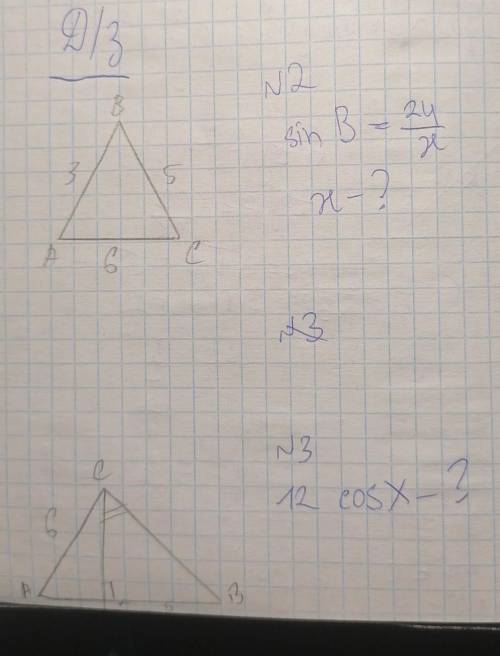 Д/з
B
3
5
A
6
C
№2
sin B = 24/x
x - ?
№3
№3
12 cos X - ?
C
6
A
B